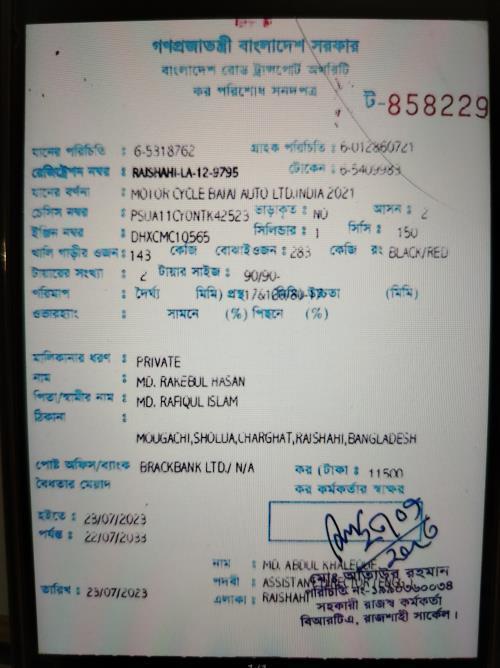 গণপ্রজাতন্ত্রী বাংলাদেশ সরকার
বাংলাদেশ রোড ট্রান্সপোর্ট অথরিটি
কর পরিশোধ সনদপত্র
ট-858229
যানের পরিচিতি : 6-5318762 গ্রাহক পরিচিতি : 6-012860721
রেজিষ্ট্রেশন নম্বর : RAJSHAHI-LA-12-9795 টোকেন : 6-5409983
যানের বর্ণনা : MOTOR CYCLE BAJAJ AUTO LTD.INDIA 2021
চেসিস নম্বর : PSUA11CY0NTK42523 ভাড়াকৃত : NO আসন : 2
ইঞ্জিন নম্বর : DHXCMC10565 সিলিন্ডার : 1 সিসি : 150
খালি গাড়ীর ওজন : 143 কেজি বোঝাই ওজন : 283 কেজি রং BLACK/RED
টায়ারের সংখ্যা : 2 টায়ার সাইজ : 90/90-
পরিমাপ : দৈর্ঘ্য মিমি) প্রস্থ (মিমি)
ওভারহ্যাং : সামনে (%) পিছনে (%)
মালিকানার ধরণ : PRIVATE
নাম : MD. RAKEBUL HASAN
পিতা/স্বামীর নাম : MD. RAFIQUL ISLAM
ঠিকানা :
MOUGACHI,SHOLUA,CHARGHAT,RAJSHAHI,BANGLADESH
পোষ্ট অফিস/ব্যাংক : BRACKBANK LTD./ N/A কর (টাকা : 11500
বৈধতার মেয়াদ কর কর্মকর্তার স্বাক্ষর
হইতে : 23/07/2023
পর্যন্ত : 22/07/2033
নাম : MD. ABDUL KHALEQUE
মোঃ আতাউর রহমান
পদবী : ASSISTANT DIRECTOR
পরিচিতি নং-১৯৯০৩৬০০৩৪
তারিখ : 23/07/2023 এলাকা : RAJSHAHI
সহকারী রাজস্ব কর্মকর্তা
বিআরটিএ, রাজশাহী সার্কেল।